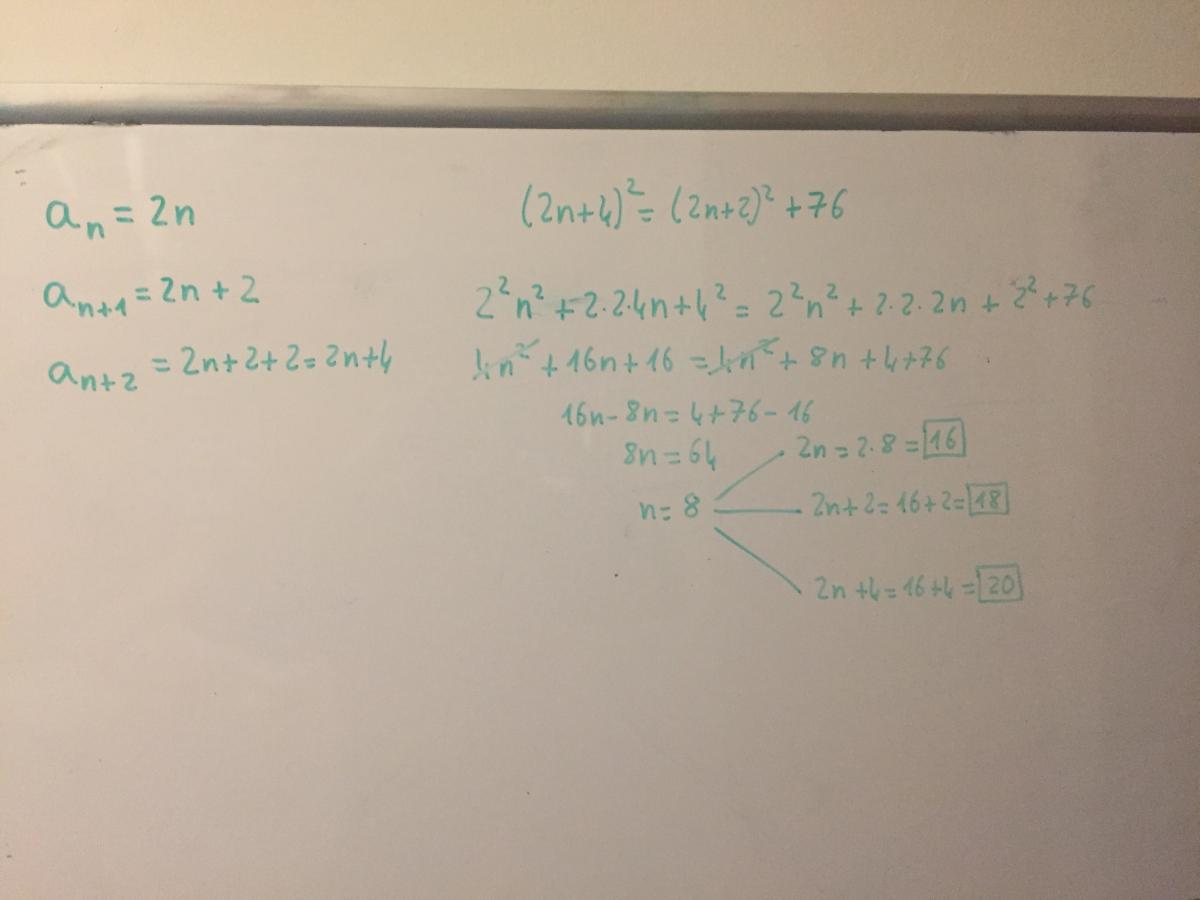 aₙ = 2n
aₙ₊₁ = 2n + 2
aₙ₊₂ = 2n+2+2 = 2n+4
(2n+4)² = (2n+2)² + 76
2²n² + 2·2·4n + 4² = 2²n² + 2·2·2n + 2² + 76
4n² + 16n + 16 = 4n² + 8n + 4 + 76
16n - 8n = 4 + 76 - 16
8n = 64
n = 8
2n = 2·8 = 16
2n+2 = 16+2 = 18
2n+4 = 16+4 = 20